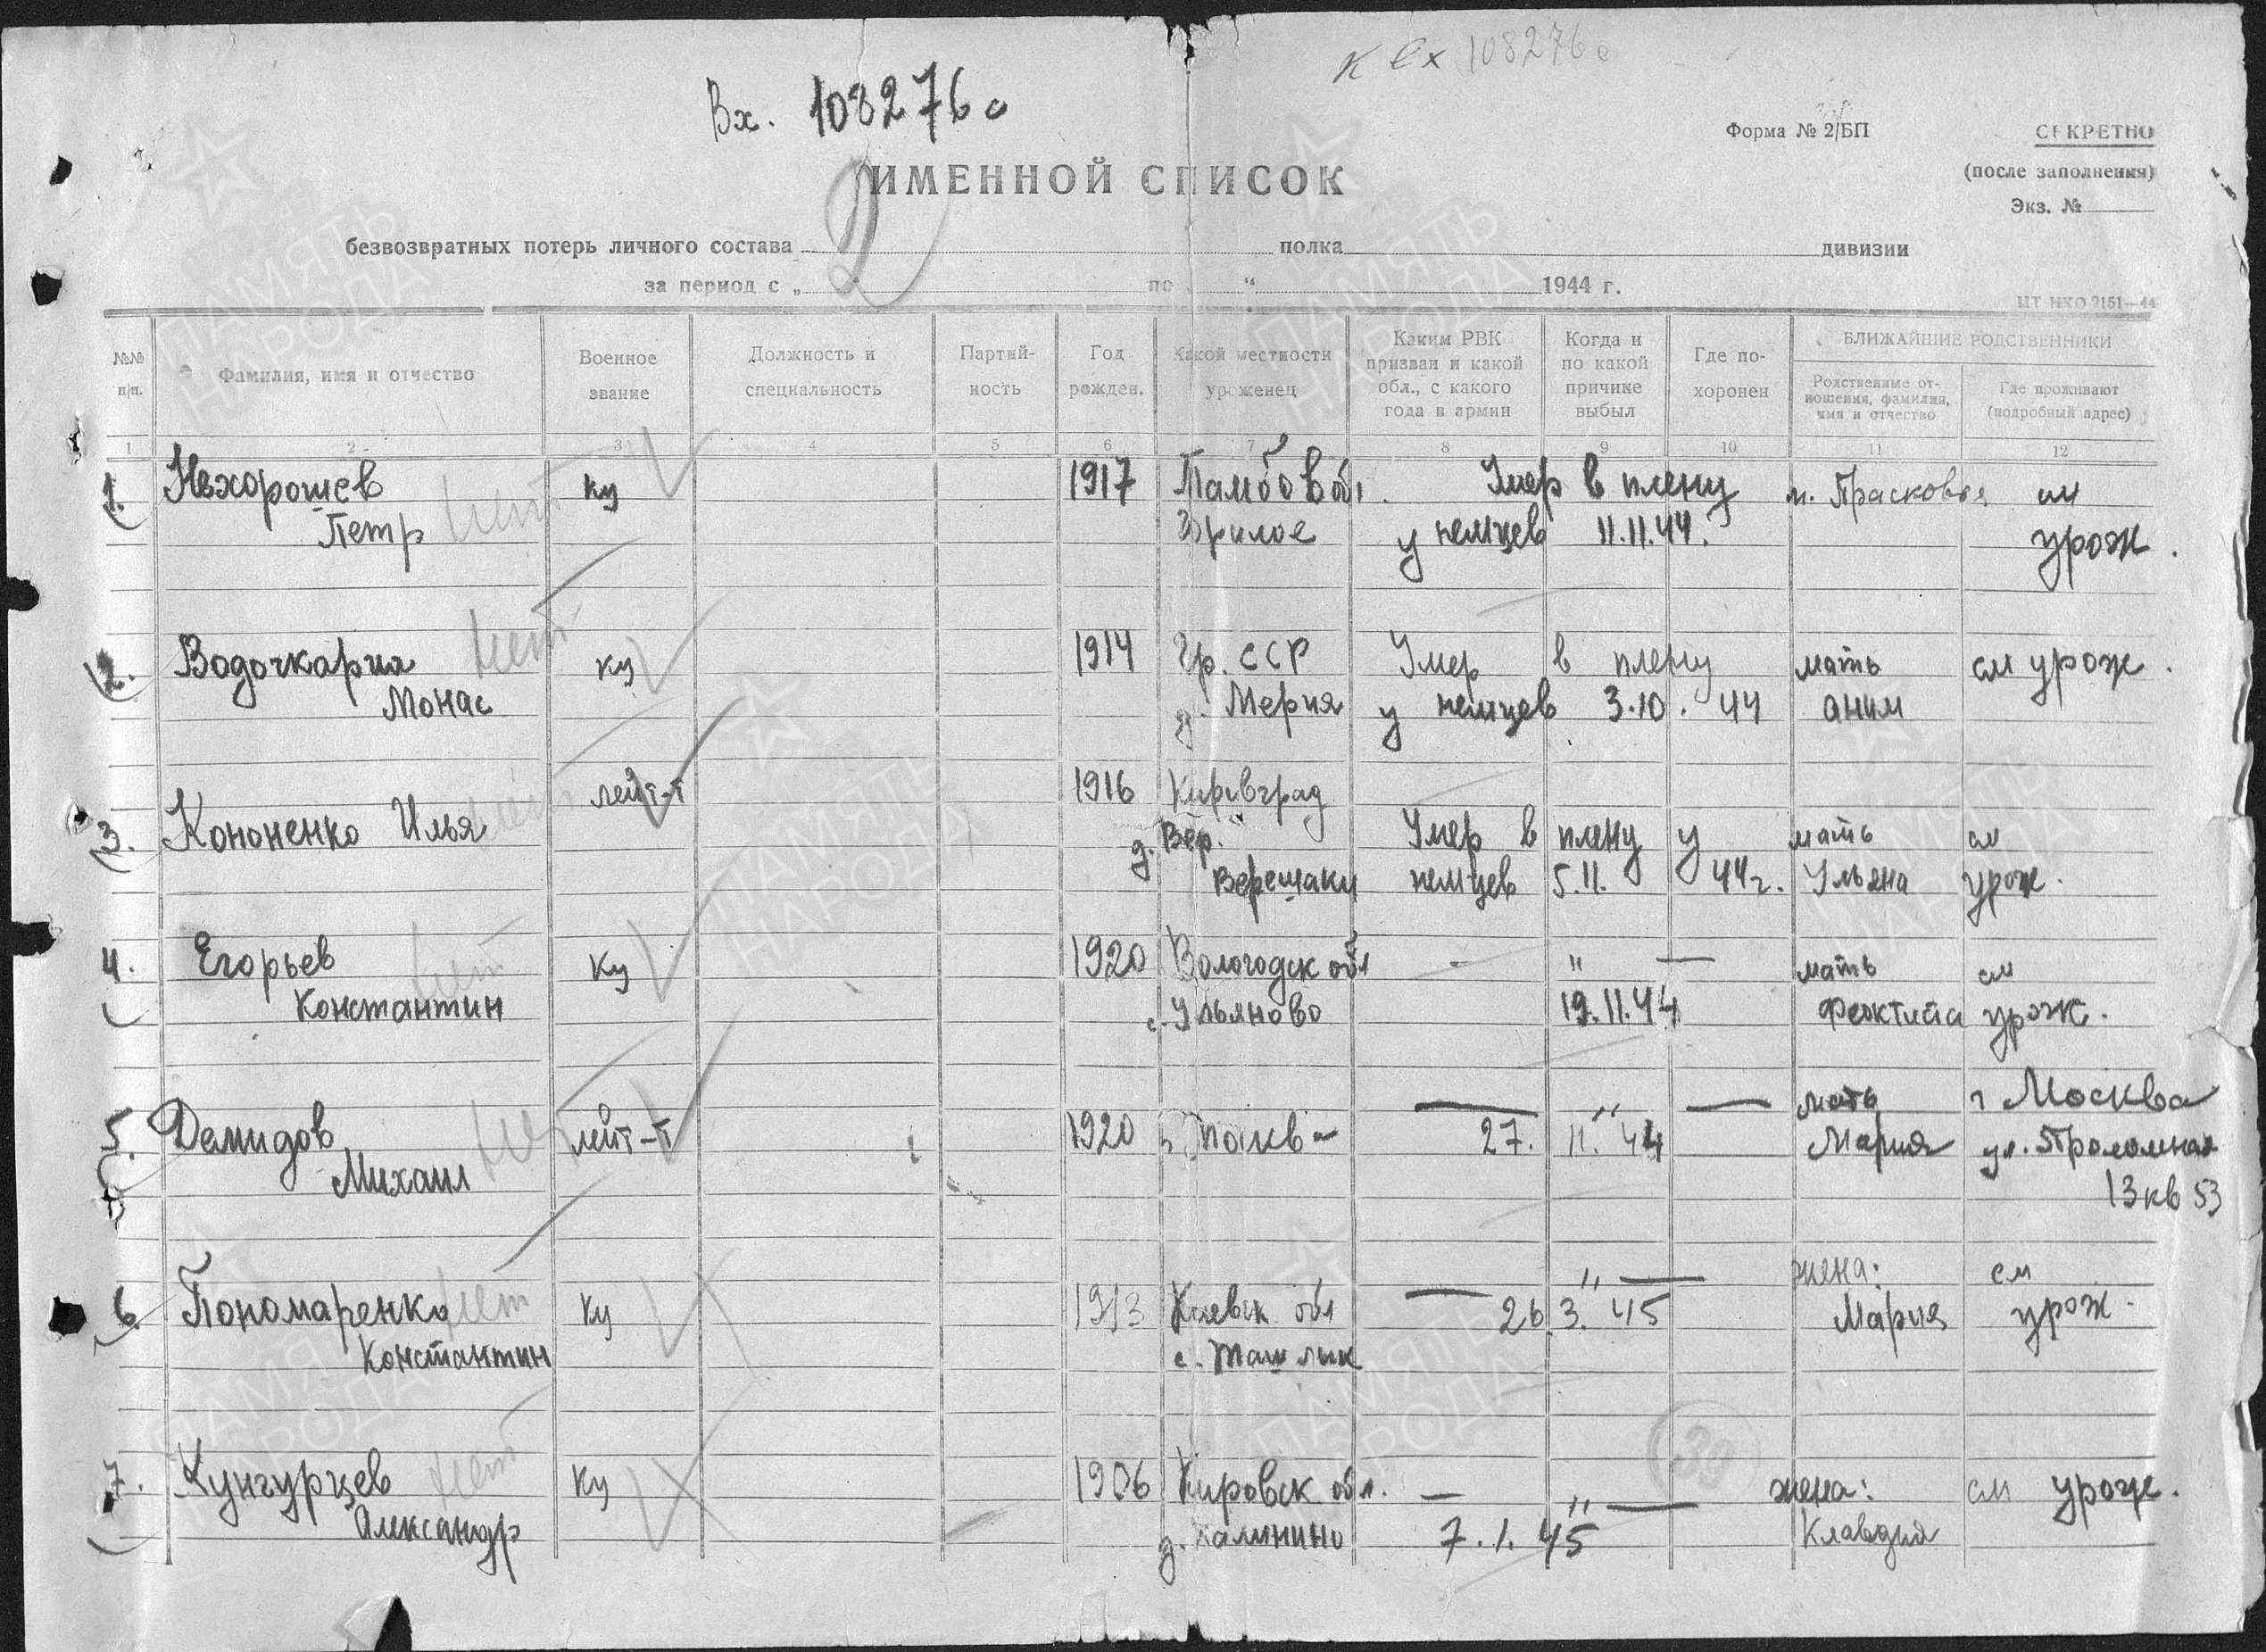 к Вх 108276с
Вх. 108276с
Форма № 2/БП
СЕКРЕТНО
(после заполнения)
Экз. №
ИМЕННОЙ СПИСОК
безвозвратных потерь личного состава полка дивизии
за период с „ по “ 1944 г.
№№ п/п.
Фамилия, имя и отчество
Военное звание
Должность и специальность
Партийность
Год рожден.
Какой местности уроженец
Каким РВК призван и какой обл., с какого года в армии
Когда и по какой причине выбыл
Где похоронен
БЛИЖАЙШИЕ РОДСТВЕННИКИ
Родственные отношения, фамилия, имя и отчество
Где проживают (подробный адрес)
1 2 3 4 5 6 7 8 9 10 11 12
1. Нехорошев нет ку 1917 Тамбов обл. Умер в плену м. Прасковья см
Петр у немцев 11.11.44. урож.
2. Водочкария нет ку 1914 Гр. ССР Умер в плену мать см урож.
Монас д. Мерия у немцев 3.10.44 аним
лейт-т 1916 Кировград
3. Кононенко Илья нет д. Вер. Умер в плену у мать см
Верещаки немцев 5.11. 44г. Ульяна урож.
4. Егорьев нет ку 1920 Вологодск обл — " — мать см
Константин с. Ульяново 19.11.44 урож.
мать г Москва
5. Демидов нет лейт-т 1920 — " — 27. 11. 44 Мария ул. Проломная
Михаил 13 кв 53
— " — жена: см
6. Пономаренко нет ку 1913 Киевск обл 26.3.45 Мария урож.
Константин с. Ташлык
7. Кунгурцев нет ку 1906 Кировск обл. — " — жена: см урож.
Александр д. Калинино 7.1.45 Клавдия
30
ПАМЯТЬ НАРОДА